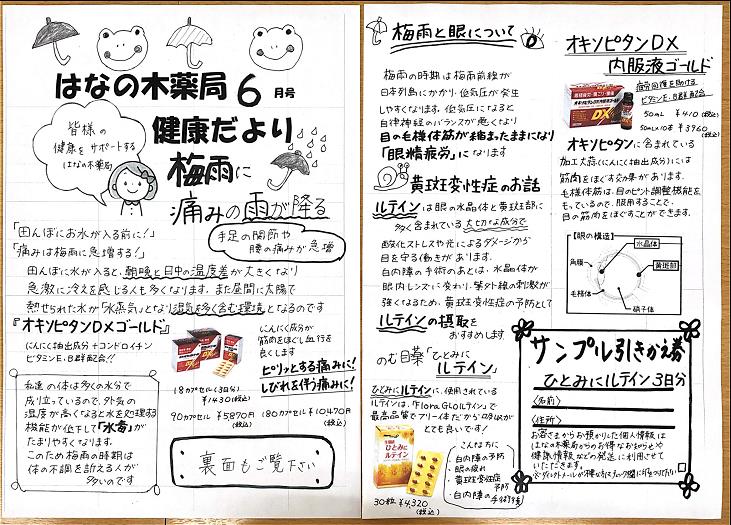 はなの木薬局6月号
健康だより
皆様の
健康をサポートする
はなの木薬局
梅雨に
痛みの雨が降る
手足の関節や
腰の痛みが急増
「田んぼにお水が入る前に!」
「痛みは梅雨に急増する!」
田んぼに水が入ると、朝晩と日中の温度差が大きくなり
急激に冷えを感じる人も多くなります。また昼間に太陽で
熱せられた水が「水蒸気」となり湿気を多く含む環境となるのです
『オキソピタンDXゴールド』
にんにく抽出成分+コンドロイチン
ビタミンE、B群配合!!
にんにく成分が
筋肉をほぐし血行を
良くします
ピリッとする痛みに!
しびれを伴う痛みに!
18カプセル(3日分)
¥1430(税込)
90カプセル ¥5870円
(税込)
180カプセル¥10470円
(税込)
私達の体は多くの水分で
成り立っているので、外気の
湿度が高くなると水を処理する
機能が低下して「水毒」が
たまりやすくなります。
このため梅雨の時期は
体の不調を訴える人が
多いのです
裏面もご覧下さい
梅雨と眼について
梅雨の時期は梅雨前線が
日本列島にかかり、低気圧が発生
しやすくなります。低気圧になると
自律神経のバランスが悪くなり
目の毛様体筋が縮まったままになり
「眼精疲労」になります
黄斑変性症のお話
ルテインは眼の水晶体と黄斑部に
多く含まれている大切な成分で
酸化ストレスや光によるダメージから
目を守る働きがあります。
白内障の手術のあとは、水晶体が
眼内レンズに変わり、紫外線の刺激が
強くなるため、黄斑変性症の予防として
ルテインの摂取を
おすすめします
のむ目薬「ひとみに
ルテイン」
ひとみにルテインに、使用されている
ルテインは、「FloraGLOルテイン」で
最高品質でフリー体だから吸収が
とても良いです!
ひとみに
ルテイン
こんな方に
・白内障の予防
・眼の疲れ
・黄斑変性症
予防
・白内障の手術後
30粒 ¥4,320
(税込)
オキソピタンDX
内服液ゴールド
DX
疲労回復を助ける
ビタミンE、B群配合
50mL ¥410(税込)
50mL×10本 ¥3960
(税込)
オキソピタンに含まれている
加工大蒜(にんにく抽出成分)には
筋肉をほぐす効果があります。
毛様体筋は、目のピント調整機能を
もっているので、服用することで、
目の筋肉をほぐすことができます。
【眼の構造】
水晶体
角膜
黄斑部
毛様体
硝子体
サンプル引きかえ券
ひとみにルテイン3日分
〈名前〉
〈住所〉
お客さまからお預かりした個人情報は
はなの木薬局からのお得なお知らせや
健康情報などの発送に利用させて
いただきます。